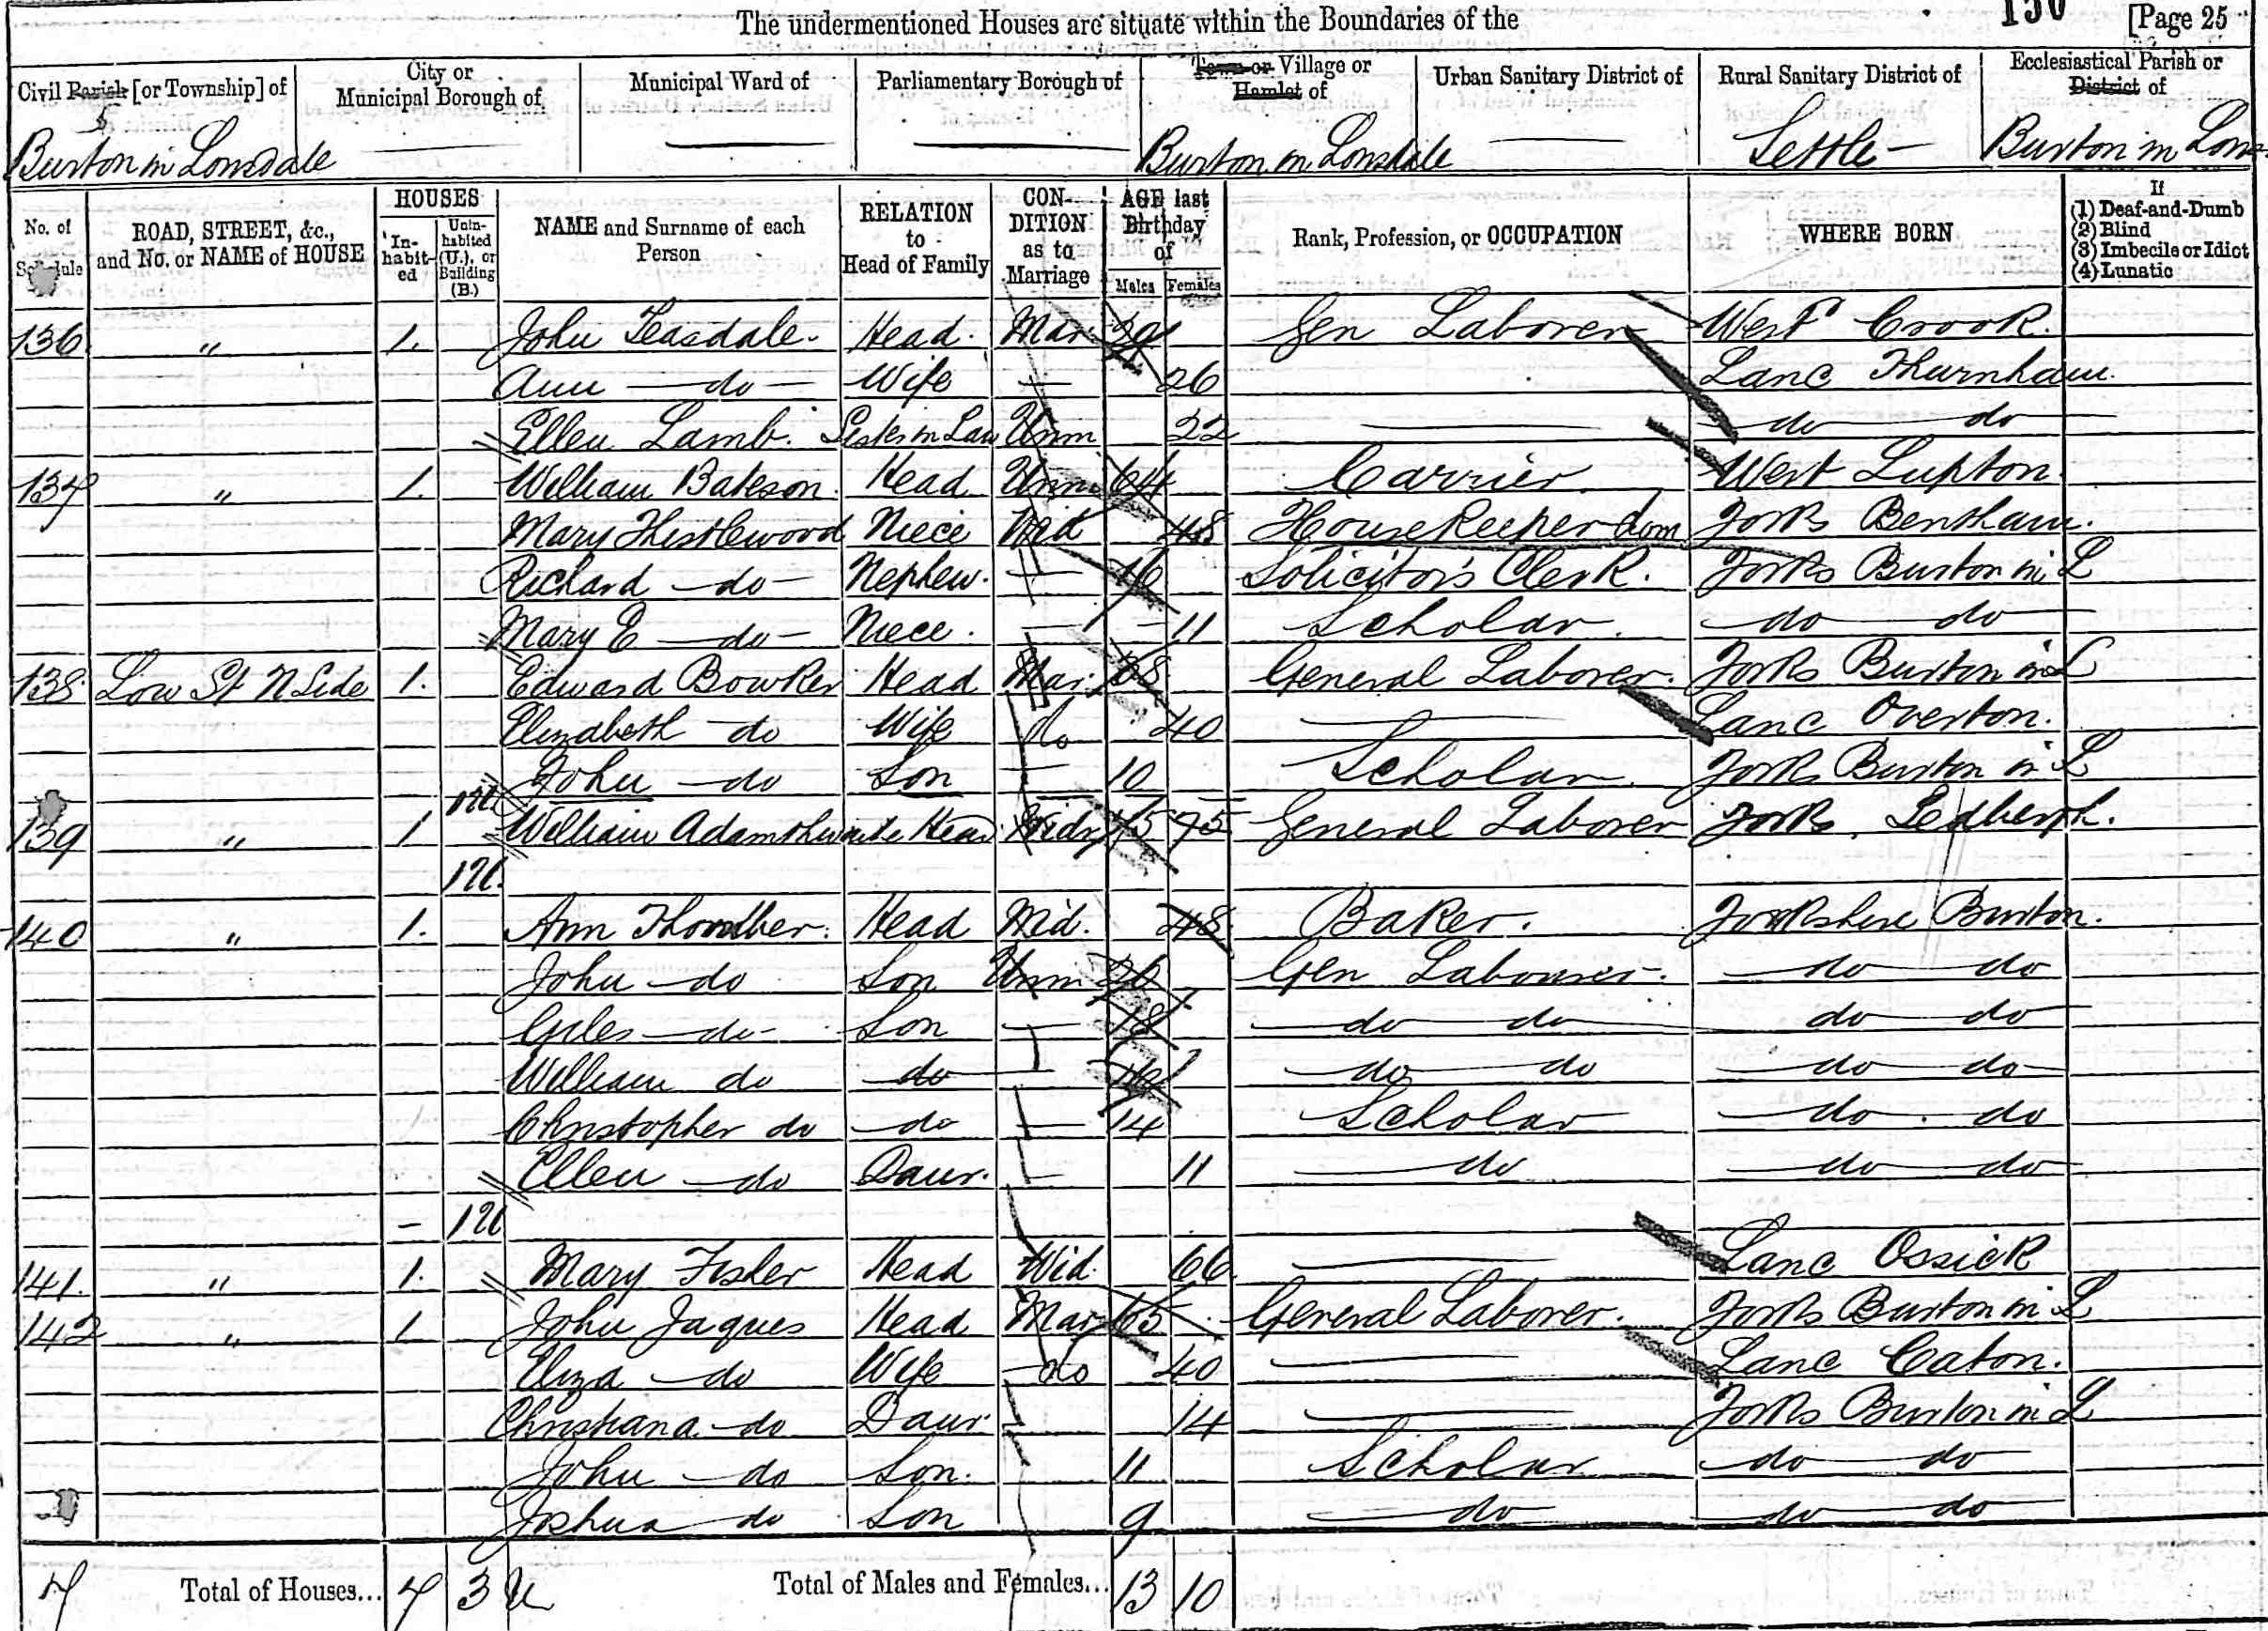 The undermentioned Houses are situate within the Boundaries of the
130 [Page 25
Civil Parish [or Township] of City or Municipal Borough of Municipal Ward of Parliamentary Borough of Town or Village or Hamlet of Urban Sanitary District of Rural Sanitary District of Ecclesiastical Parish or District of
Burton in Lonsdale Burton in Lonsdale Settle Burton in Lons
No. of Schedule ROAD, STREET, &c., and No. or NAME of HOUSE HOUSES In-habit-ed Unin-habited (U.), or Building (B.) NAME and Surname of each Person RELATION to Head of Family CON-DITION as to Marriage AGE last Birthday of Males Females Rank, Profession, or OCCUPATION WHERE BORN If (1) Deaf-and-Dumb (2) Blind (3) Imbecile or Idiot (4) Lunatic
136 " 1. John Teasdale Head. Mar 29 Gen Laborer West Crook.
Ann do Wife — 26 Lanc Thurnham.
Ellen Lamb. Sister in Law Unm 22 do do
137 " 1. William Bateson Head Unm 64 Carrier. West Lupton.
Mary Thistlewood Niece Wid 48 Housekeeper dom Yorks Bentham.
Richard do Nephew. — 16 Solicitor's Clerk. Yorks Burton in L
Mary E do Niece. — 11 Scholar. do do
138 Low St N Side 1. Edward Bowker Head Mar. General Laborer. Yorks Burton in L
Elizabeth do Wife do 40 Lanc Overton.
John do Son — 10 Scholar. Yorks Burton in L
1U
139 " 1 William Adamthwaite Head Widr 75 75 General Laborer Yorks. Sedbergh.
1U.
140 " 1. Ann Thornber. Head Wid. 48 Baker. Yorkshire Burton.
John do Son Unm 20 Gen Labourer. do do
Giles do Son — 18 do do do do
William do do 16 do do do do
Christopher do do — 14 Scholar do do
Ellen do Daur. — 11 do do do
– 1U
141. " 1. Mary Fisher Head Wid. 66 Lanc Ossick
142 " 1 John Jaques Head Mar 65 General Laborer. Yorks Burton in L
Eliza do Wife do 40 Lanc Caton.
Christiana do Daur. — 14 Yorks Burton in L
John do Son. 11 Scholar do do
Joshua do Son 9 do do do
7 Total of Houses... 7 3 U Total of Males and Females... 13 10